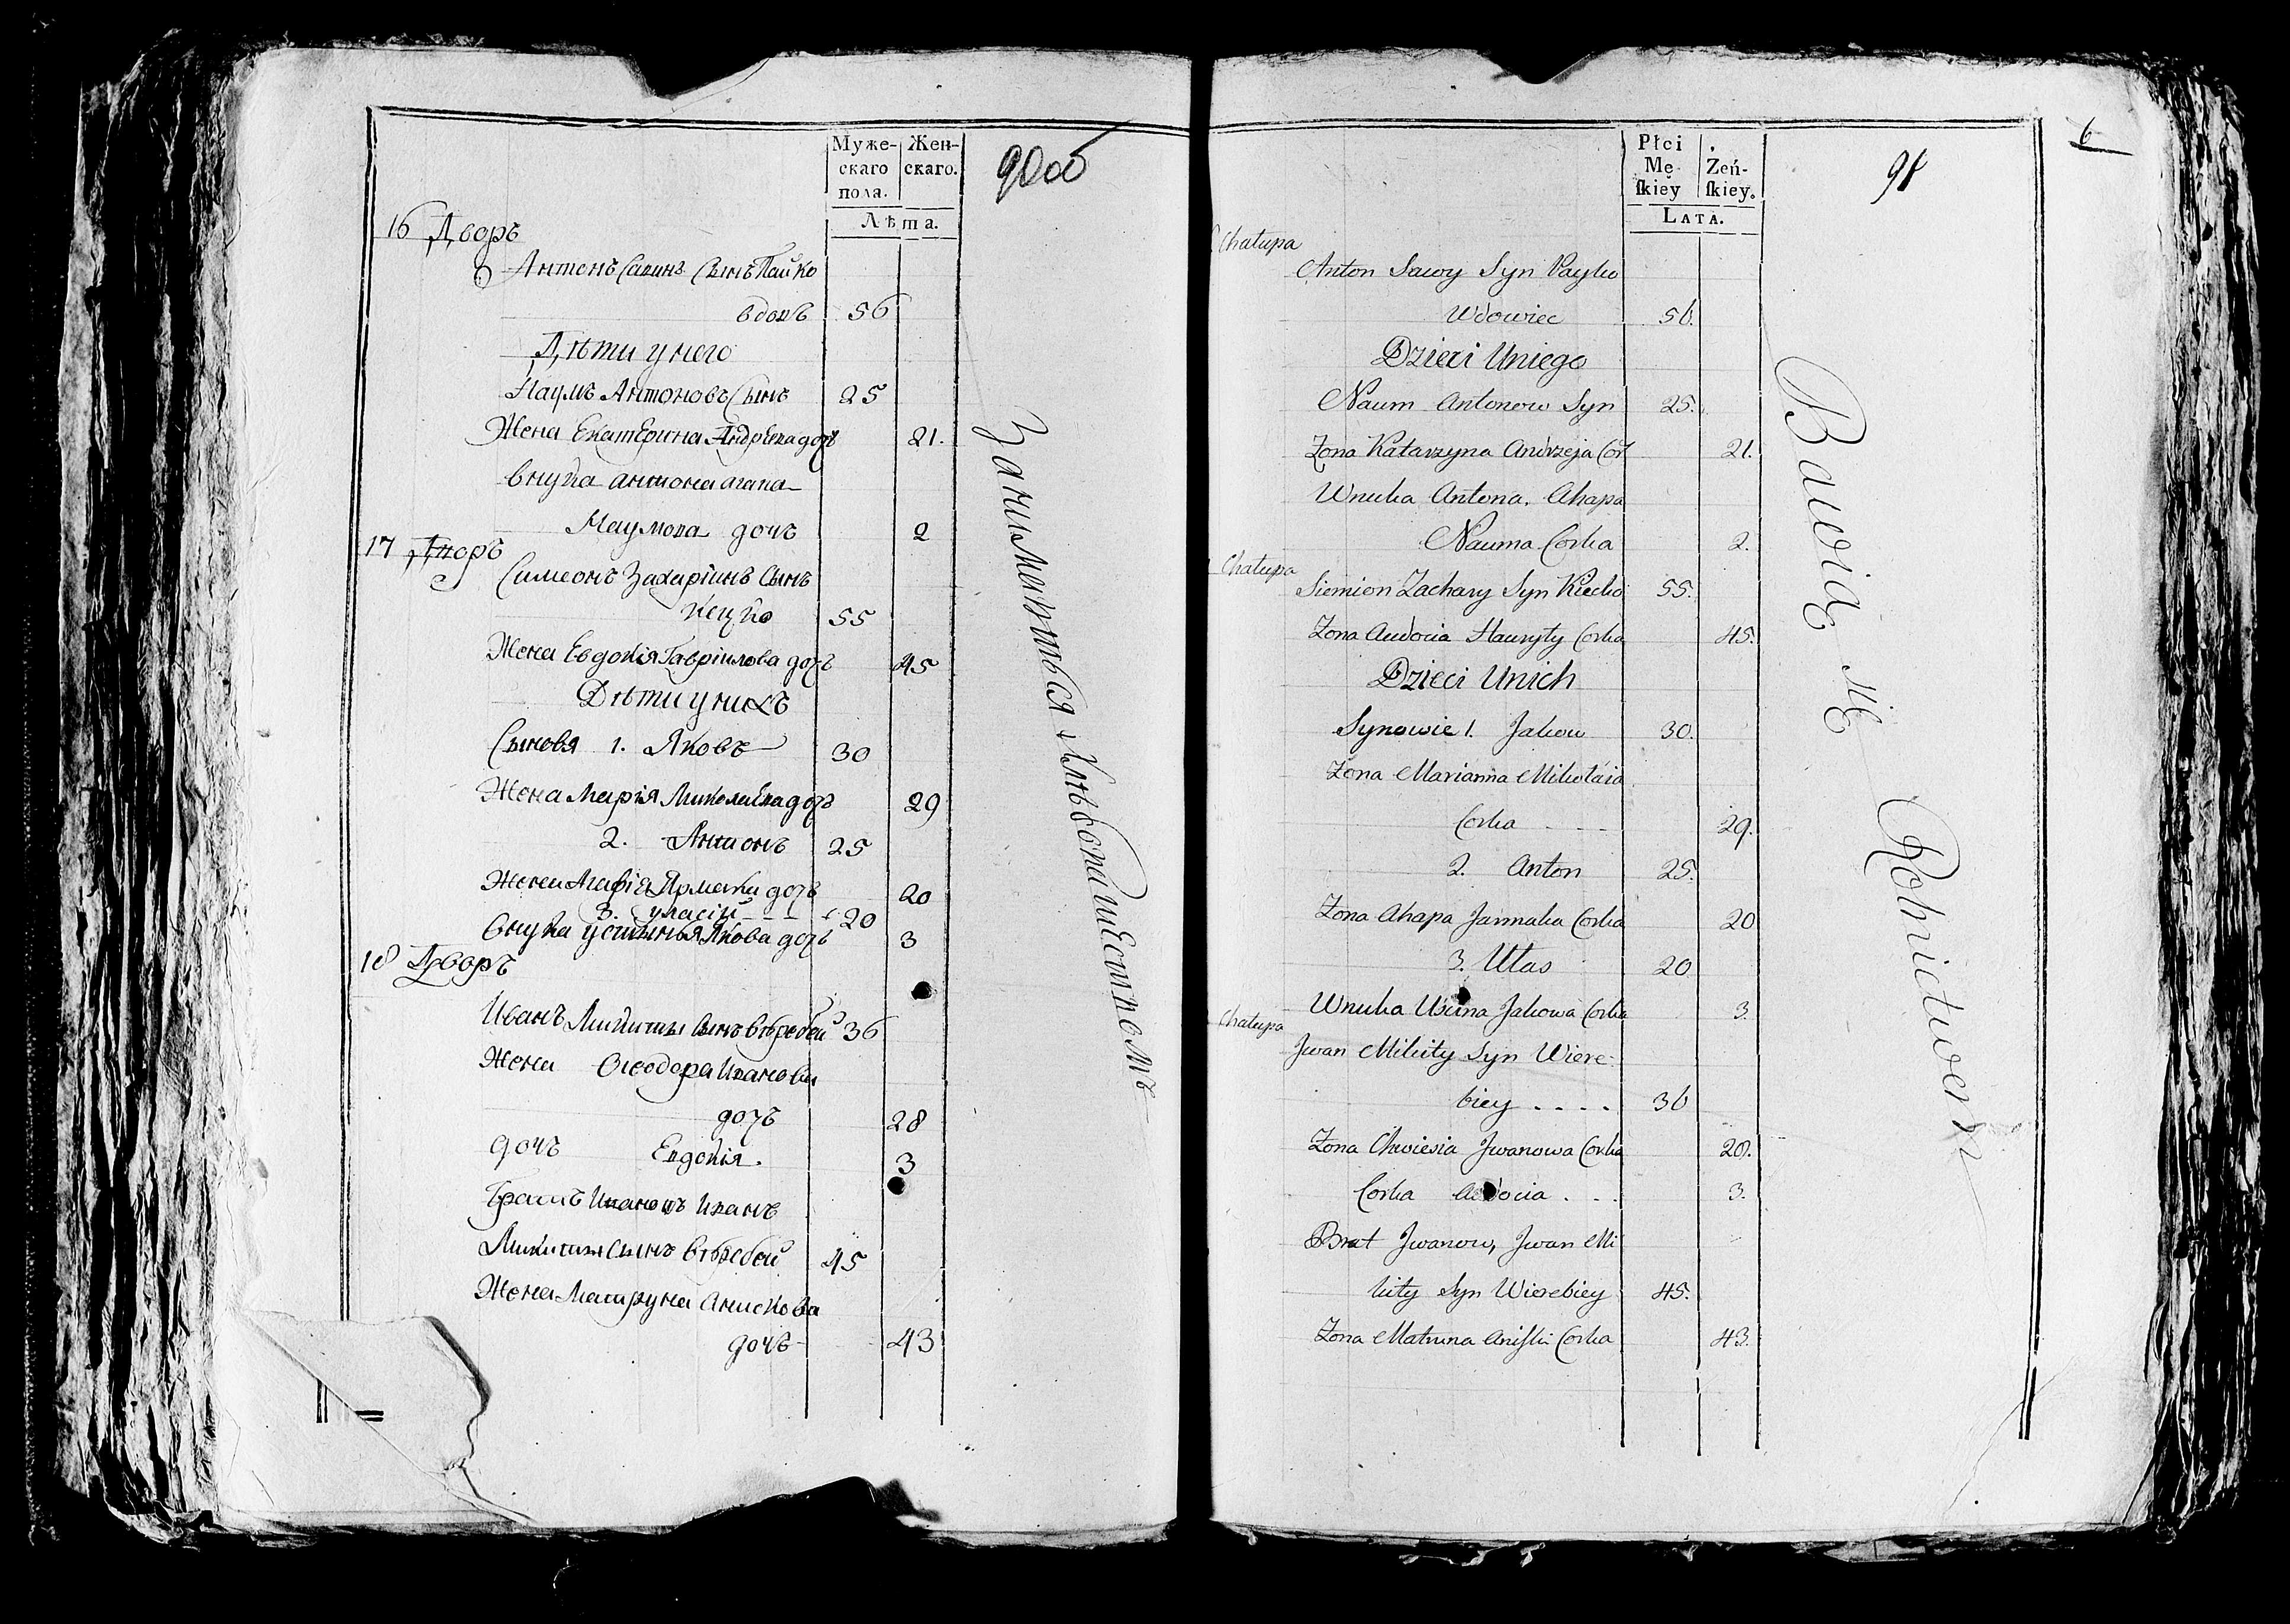 Муже-
скаго
пола.
Жен-
скаго.
Лѣта.
90об
16 Дворъ
Антонъ Савинъ Сынъ Пайко
вдовъ 56
Дѣти у него
Наумъ Антоновъ Сынъ 25
Жена Екатерина Андрѣева дочь 21.
внука антона агапа
Наумова дочь 2
17 Дворъ
Симеонъ Захаріинъ Сынъ
Кецко 55
Жена Евдокія Гавріилова дочь 45
Дѣти у нихъ
Сыновя 1. Яковъ 30
Жена Марія Миколаева дочь 29
2. Антонъ 25
Жена Агафія Ярмака дочь 20
3. уласій - - - 20
Внука устинья Якова дочь 3
18 Дворъ
Иванъ Микиты Сынъ вѣребей 36
Жена Ѳеодора Иванова
дочь 28
дочь Евдокія. 3
Братъ Ивановъ Иванъ
Микиты Сынъ вѣребей 45
Жена Матруна Анискова
дочь 43
Занимаются Хлѣбопашествомъ
Płci
Mę
ſkiey
Żeń-
ſkiey.
LATA.
6
91
Chałupa
Anton Sawy Syn Payko
Wdowiec 56.
Dzieci Uniego
Naum Antonow Syn 25.
Żona Katarzyna Andrzeja Cor 21.
Wnuka Antona. Ahapa
Nauma Corka 2.
Chałupa
Siemion Zachary Syn Kiecko 55.
Żona Audocia Hauryły Corka 45.
Dzieci Unich
Synowie 1. Jakow 30.
Żona Marianna Mikołaia
Corka - - - 29.
2. Anton 25.
Żona Ahapa Jarmaka Corka 20
3. Ułas 20
Wnuka Uscina Jakowa Corka 3.
Chałupa
Jwan Mikity Syn Wiere-
biey . . . . 36
Żona Chwiesia Jwanowa Corka 28.
Corka Audocia . . . 3.
Brat Jwanow, Jwan Mi
kity Syn Wierebiey 45.
Żona Matruna Aniſki Corka 43.
Bawią się Rolnictwem